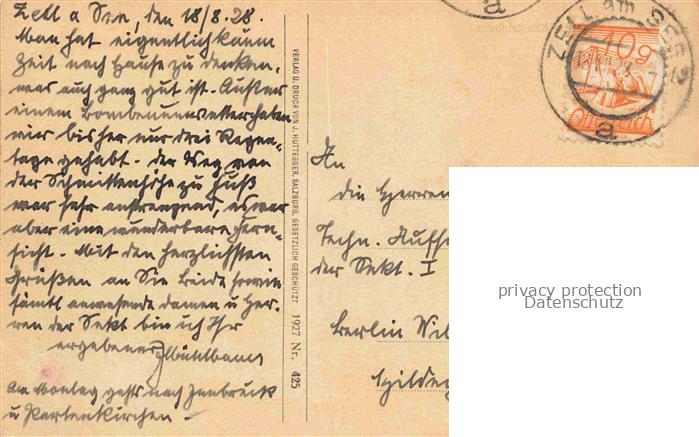 Zell a See, den 18/8.28.
Man hat eigentlich kaum
Zeit nach Hause zu denken,
was auch ganz gut ist. Außer
einem Bombenunwetter haben
wir bisher nur drei Regen-
tage gehabt. Der Weg von
der Schmittenhöhe zu Fuß
war sehr anstrengend, es war
aber eine wunderbare Fern-
sicht. Mit den herzlichsten
Grüßen an Sie beide sowie
sämtl anwesende Damen u Her-
ren der Sekt bin ich Ihr
ergebener
Am Montag gehts nach Innbruck
u Partenkirchen
VERLAG U. DRUCK VON J. HUTTEGGER, SALZBURG. GESETZLICH GESCHÜTZT 1927 Nr. 425
ZELL am SEE 2
a
40g
Österreich
An
die Herren
Techn. Aufs
der Sekt. I
Berlin Wil
Hilde
privacy protection
Datenschutz